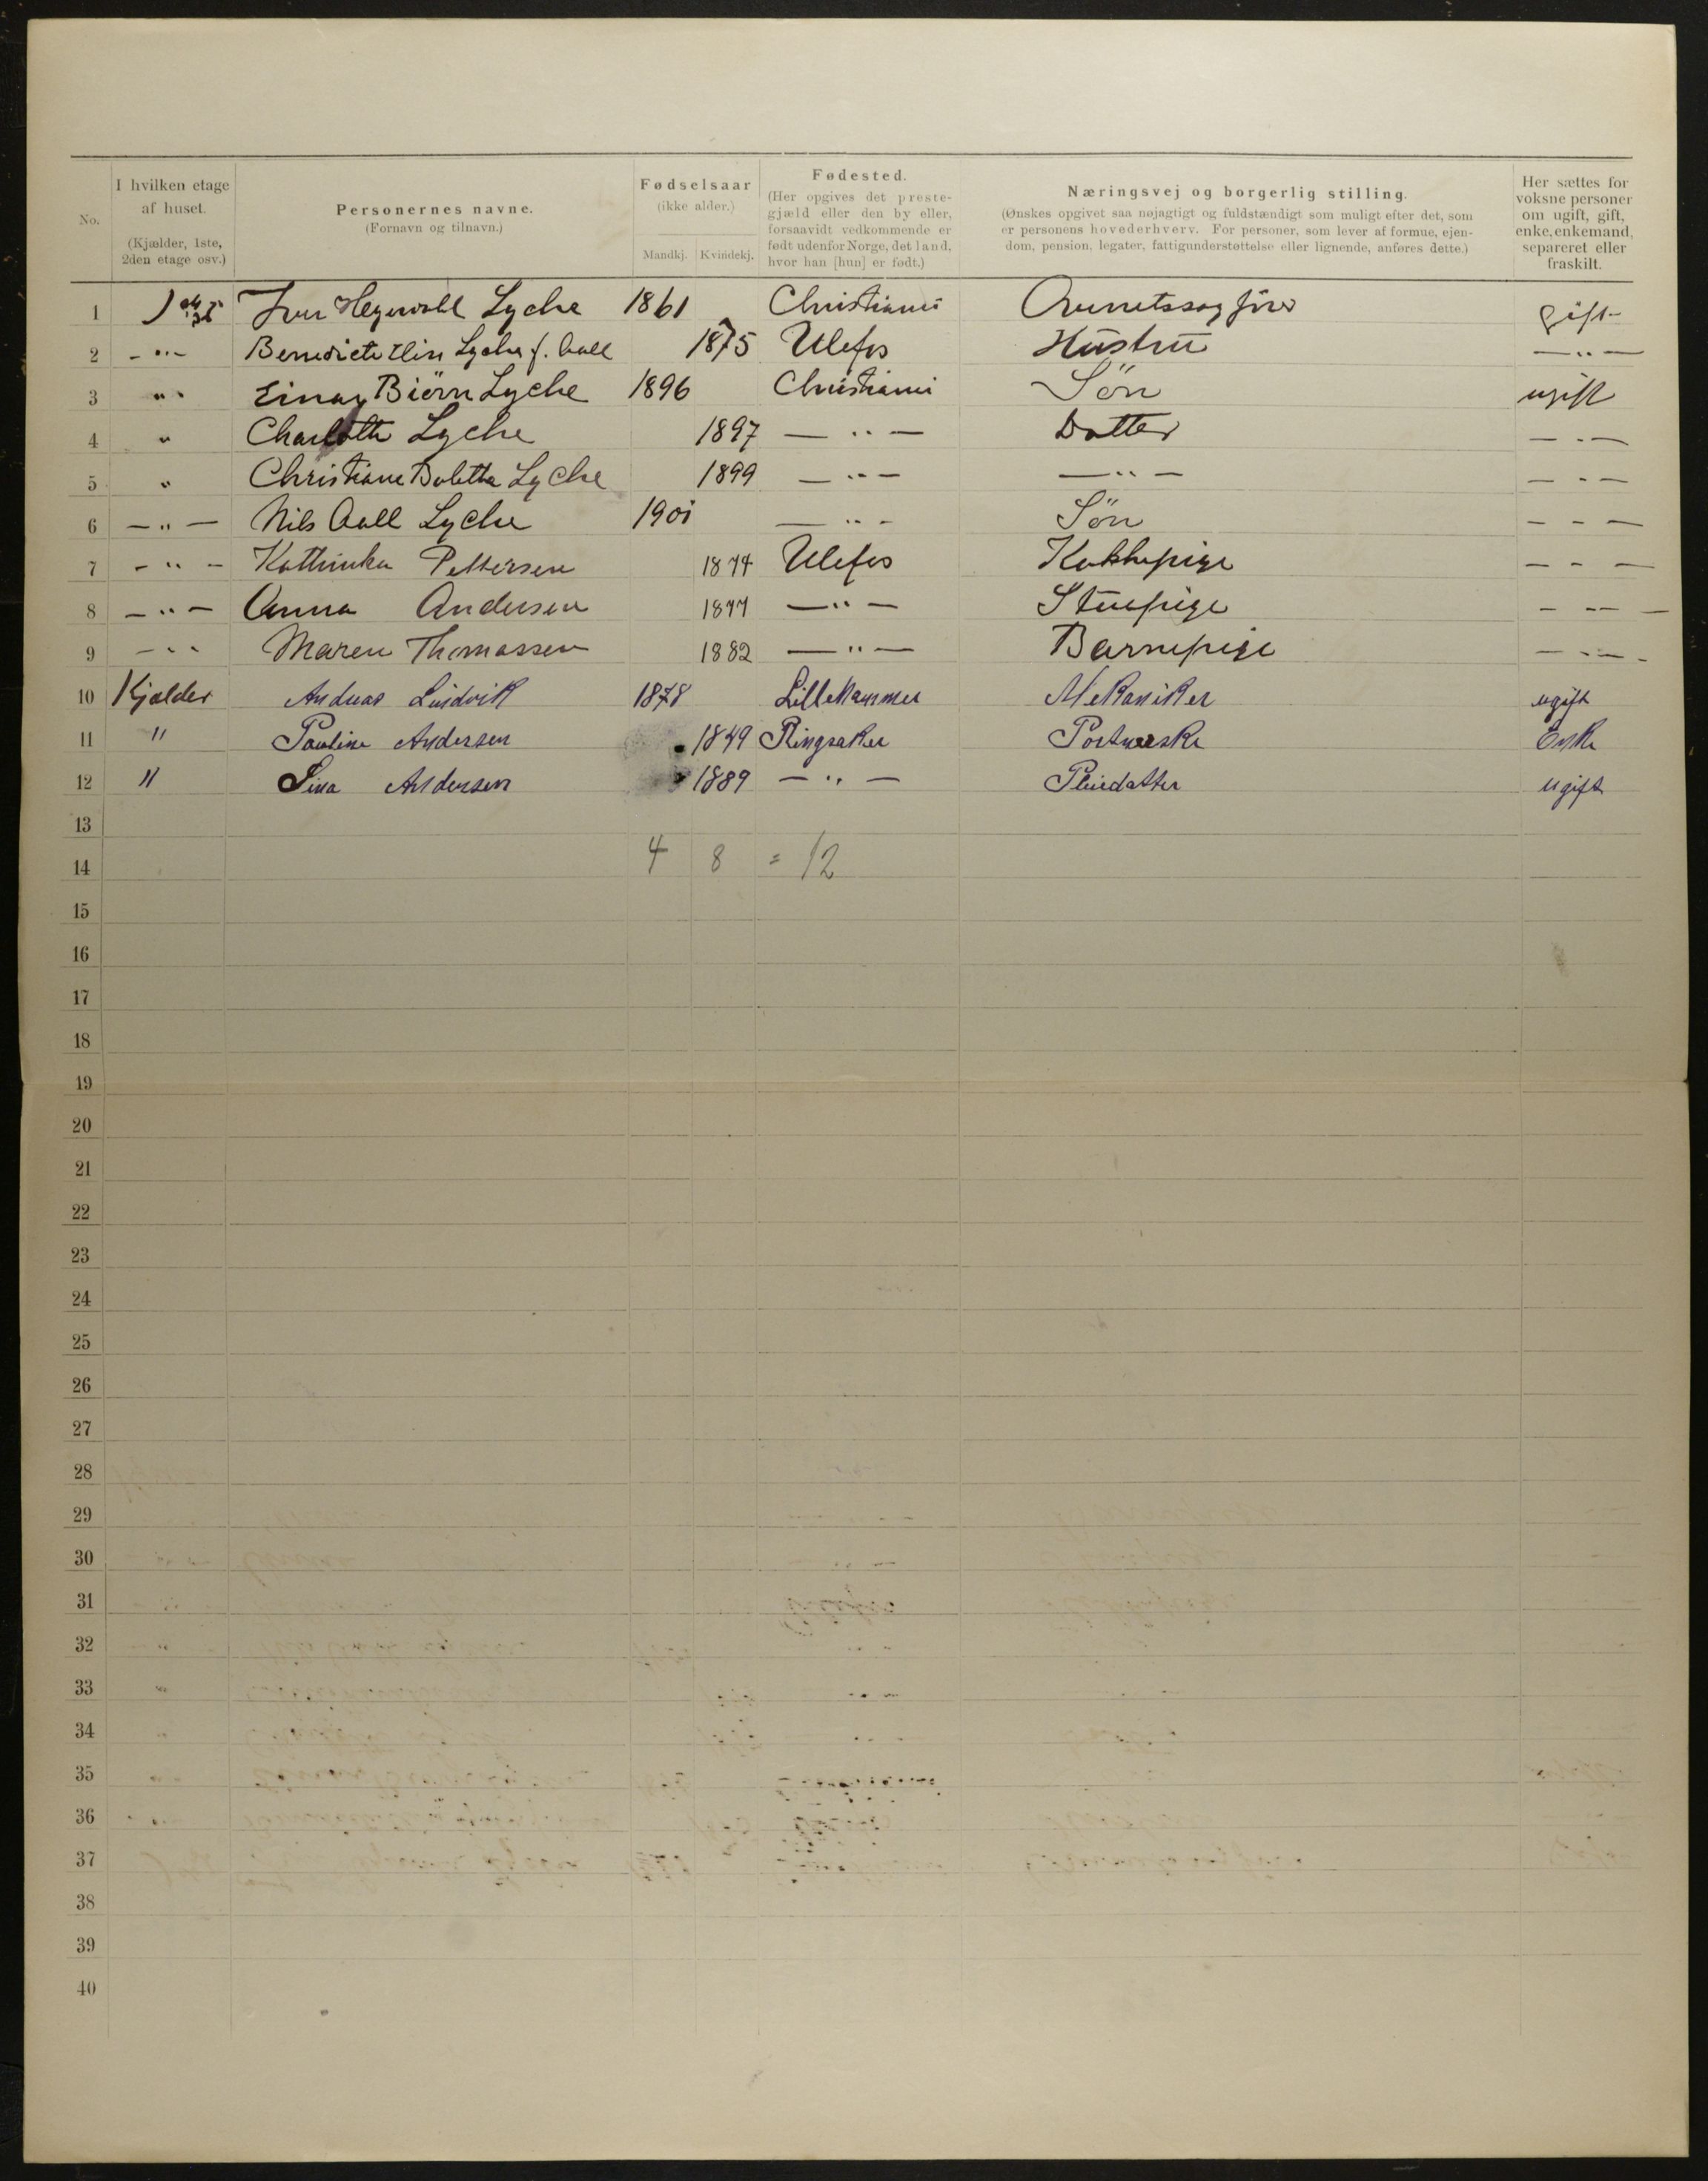 No. | I hvilken etage af huset. (Kjælder, 1ste, 2den etage osv.) | Personernes navne. (Fornavn og tilnavn.) | Fødselsaar (ikke alder.) Mandkj. Kvindekj. | Fødested. (Her opgives det prestegjæld eller den by eller, forsaavidt vedkommende er født udenfor Norge, det land, hvor han [hun] er født.) | Næringsvej og borgerlig stilling. (Ønskes opgivet saa nøjagtigt og fuldstændigt som muligt efter det, som er personens hovederhverv. For personer, som lever af formue, ejendom, pension, legater, fattigunderstøttelse eller lignende, anføres dette.) | Her sættes for voksne personer om ugift, gift, enke, enkemand, separeret eller fraskilt.
1 Lyche 1861 Christiania Overretssagfører gift
2 — " — Benedicte Elise Lyche f. Aall 1875 Ulefos Hustru — " —
3 " Einar Biörn Lyche 1896 Christiania Sön ugift
4 " Charlotte Lyche 1897 — " — Datter — " —
5 " Christiane Boletta Lyche 1899 — " — — " — — " —
6 — " — Nils Aall Lyche 1901 — " — Sön — " —
7 — " — Kathinka Pettersen 1874 Ulefos Kokkepige — " —
8 — " — Anna Andersen 1877 — " — Stuepige — " —
9 — " — Maren Thomassen 1882 — " — Barnepige — " —
10 Kjælder Andreas Lindvik 1878 Lillehammer Mekaniker ugift
11 " Pauline Andersen 1849 Ringsaker Portnerske Enke
12 " Lina Andersen 1889 — " — Pleiedatter ugift
13
14 4 8 = 12
15
16
17
18
19
20
21
22
23
24
25
26
27
28
29
30
31
32
33
34
35
36
37
38
39
40